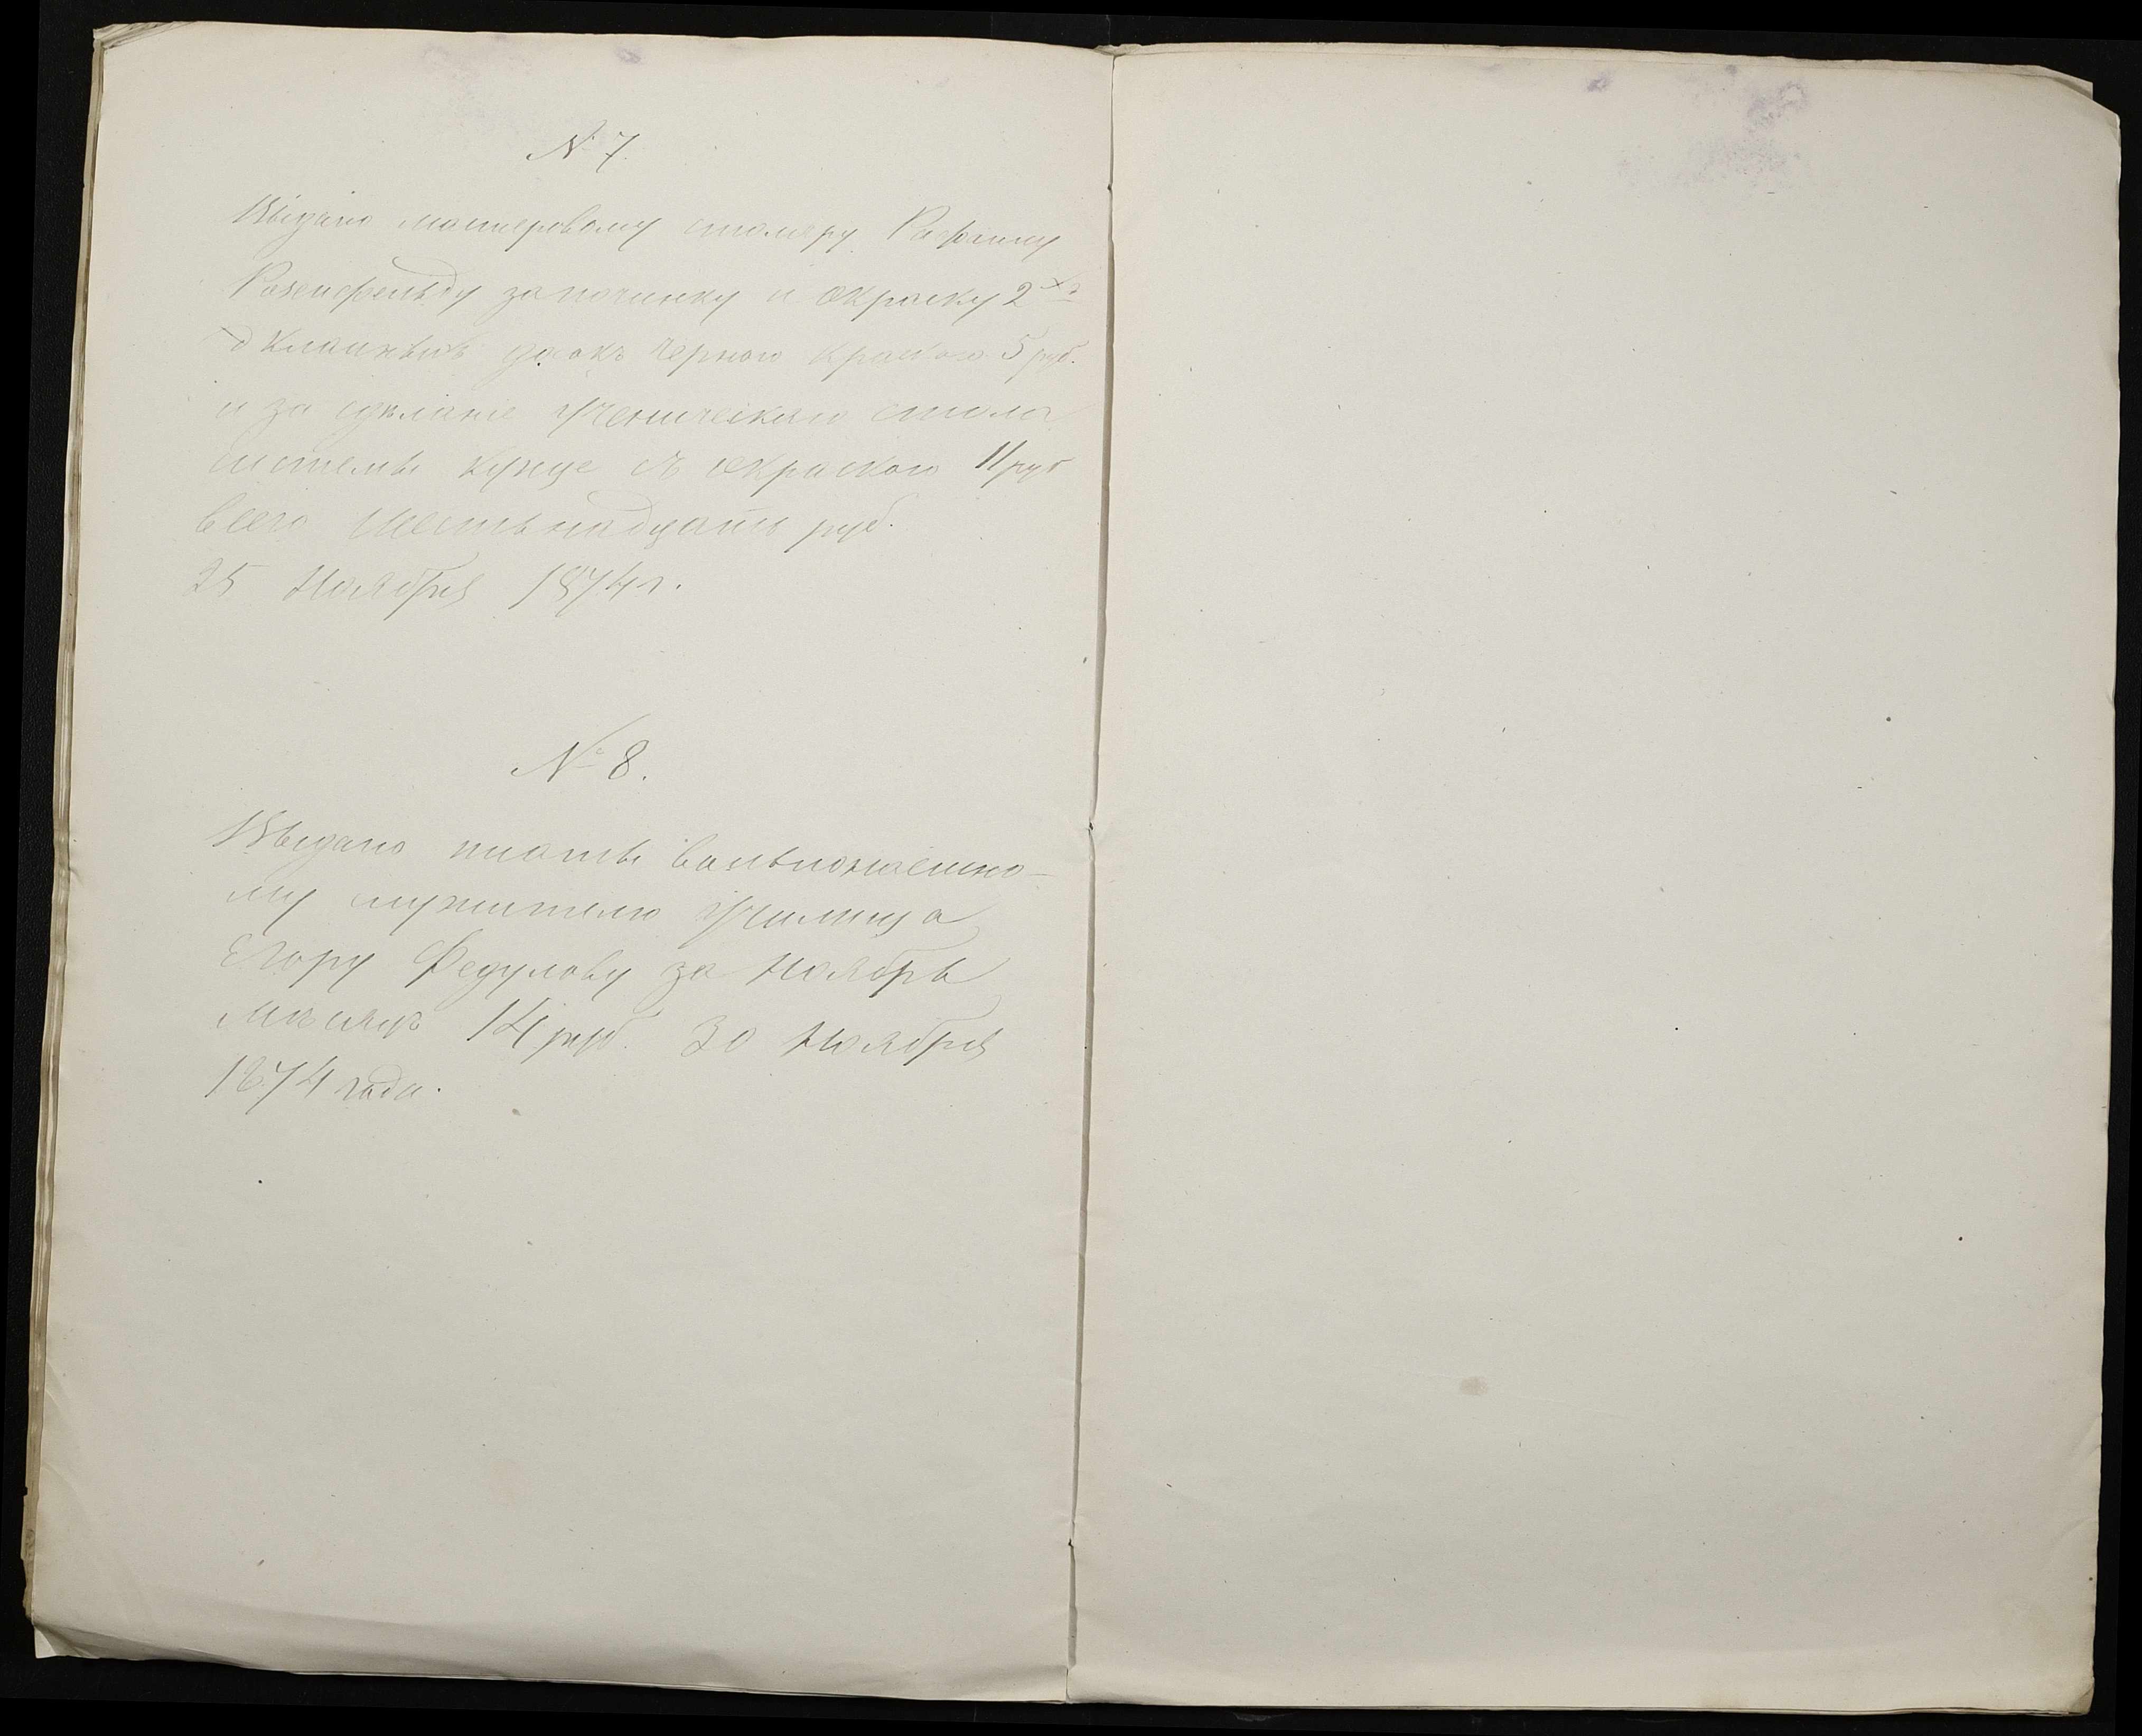 № 7.
Выдано мастеровому столяру
Розенфельду за починку и окраску 2хъ
классныхъ досокъ черною краскою 5 руб.
и за сдѣланіе Ученическаго стола
системы Кунце съ окраскою 11 руб
всего шестьнадцать руб.
25 Ноября 1874 г.
№ 8.
Выдано платы вольнонаемно-
му служителю Училища
Егору Федулову за Ноябрь
мѣсяцъ 14 руб. 30 Ноября
1874 года.